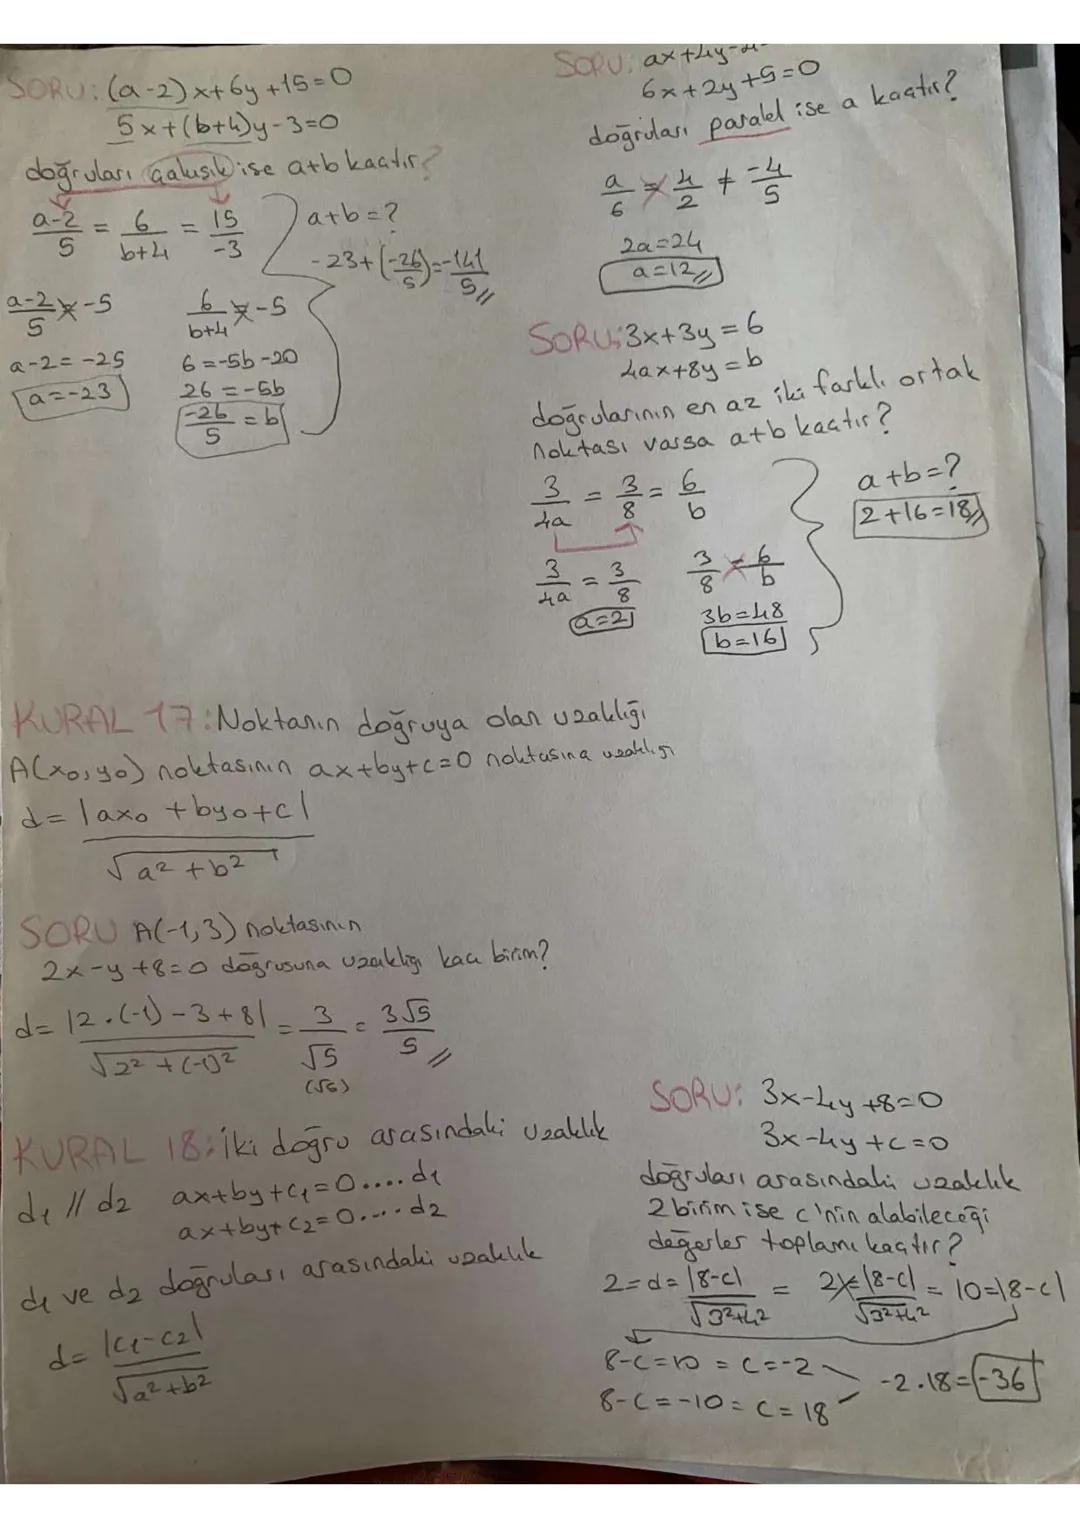 SORU: (a-2)x+6y+15=0
5x+(b+4)y-3=0
doğruları çakışık ise a+b kaçtır?
a-2/5 = 6/b+4 = 15/-3
a+b=?
-23+(-26/5)=-141/5
a-2/5 = -5
6/b+4 = -5
a-2=-25
6=-5b-20
a=-23
26=-5b
-26/5=b
SORU: ax+4y-4-
6x+2y+5=0
doğruları paralel ise a kaçtır?
a/6 = 4/2 ≠ -4/5
2a=24
a=12
SORU: 3x+3y=6
4ax+8y=b
doğrularının en az iki farklı ortak
noktası varsa a+b kaçtır?
3/4a = 3/8 = 6/b
a+b=?
2+16=18
3/4a = 3/8
3/8 = 6/b
a=2
3b=48
b=16
KURAL 17: Noktanın doğruya olan uzaklığı
A(x₀,y₀) noktasının ax+by+c=0 noktasına uzaklığı
d= |ax₀+by₀+c|
√a²+b²
SORU A(-1,3) noktasının
2x-y+8=0 doğrusuna uzaklığı kaç birim?
d= |2.(-1)-3+8| / √2²+(-1)² = 3/√5 = 3√5/5
(√5)
KURAL 18: İki doğru arasındaki uzaklık
d₁ // d₂ ax+by+c₁=0....d₁
ax+by+c₂=0....d₂
d₁ ve d₂ doğruları arasındaki uzaklık
d= |c₁-c₂|
√a²+b²
SORU: 3x-4y+8=0
3x-4y+c=0
doğruları arasındaki uzaklık
2 birim ise c'nin alabileceği
değerler toplamı kaçtır?
2=d= |8-c| / √3²+4² = 2= |8-c| / √3²+4² = 10=|8-c|
8-c=10 = c=-2
8-c=-10 = c=18
-2.18=-36